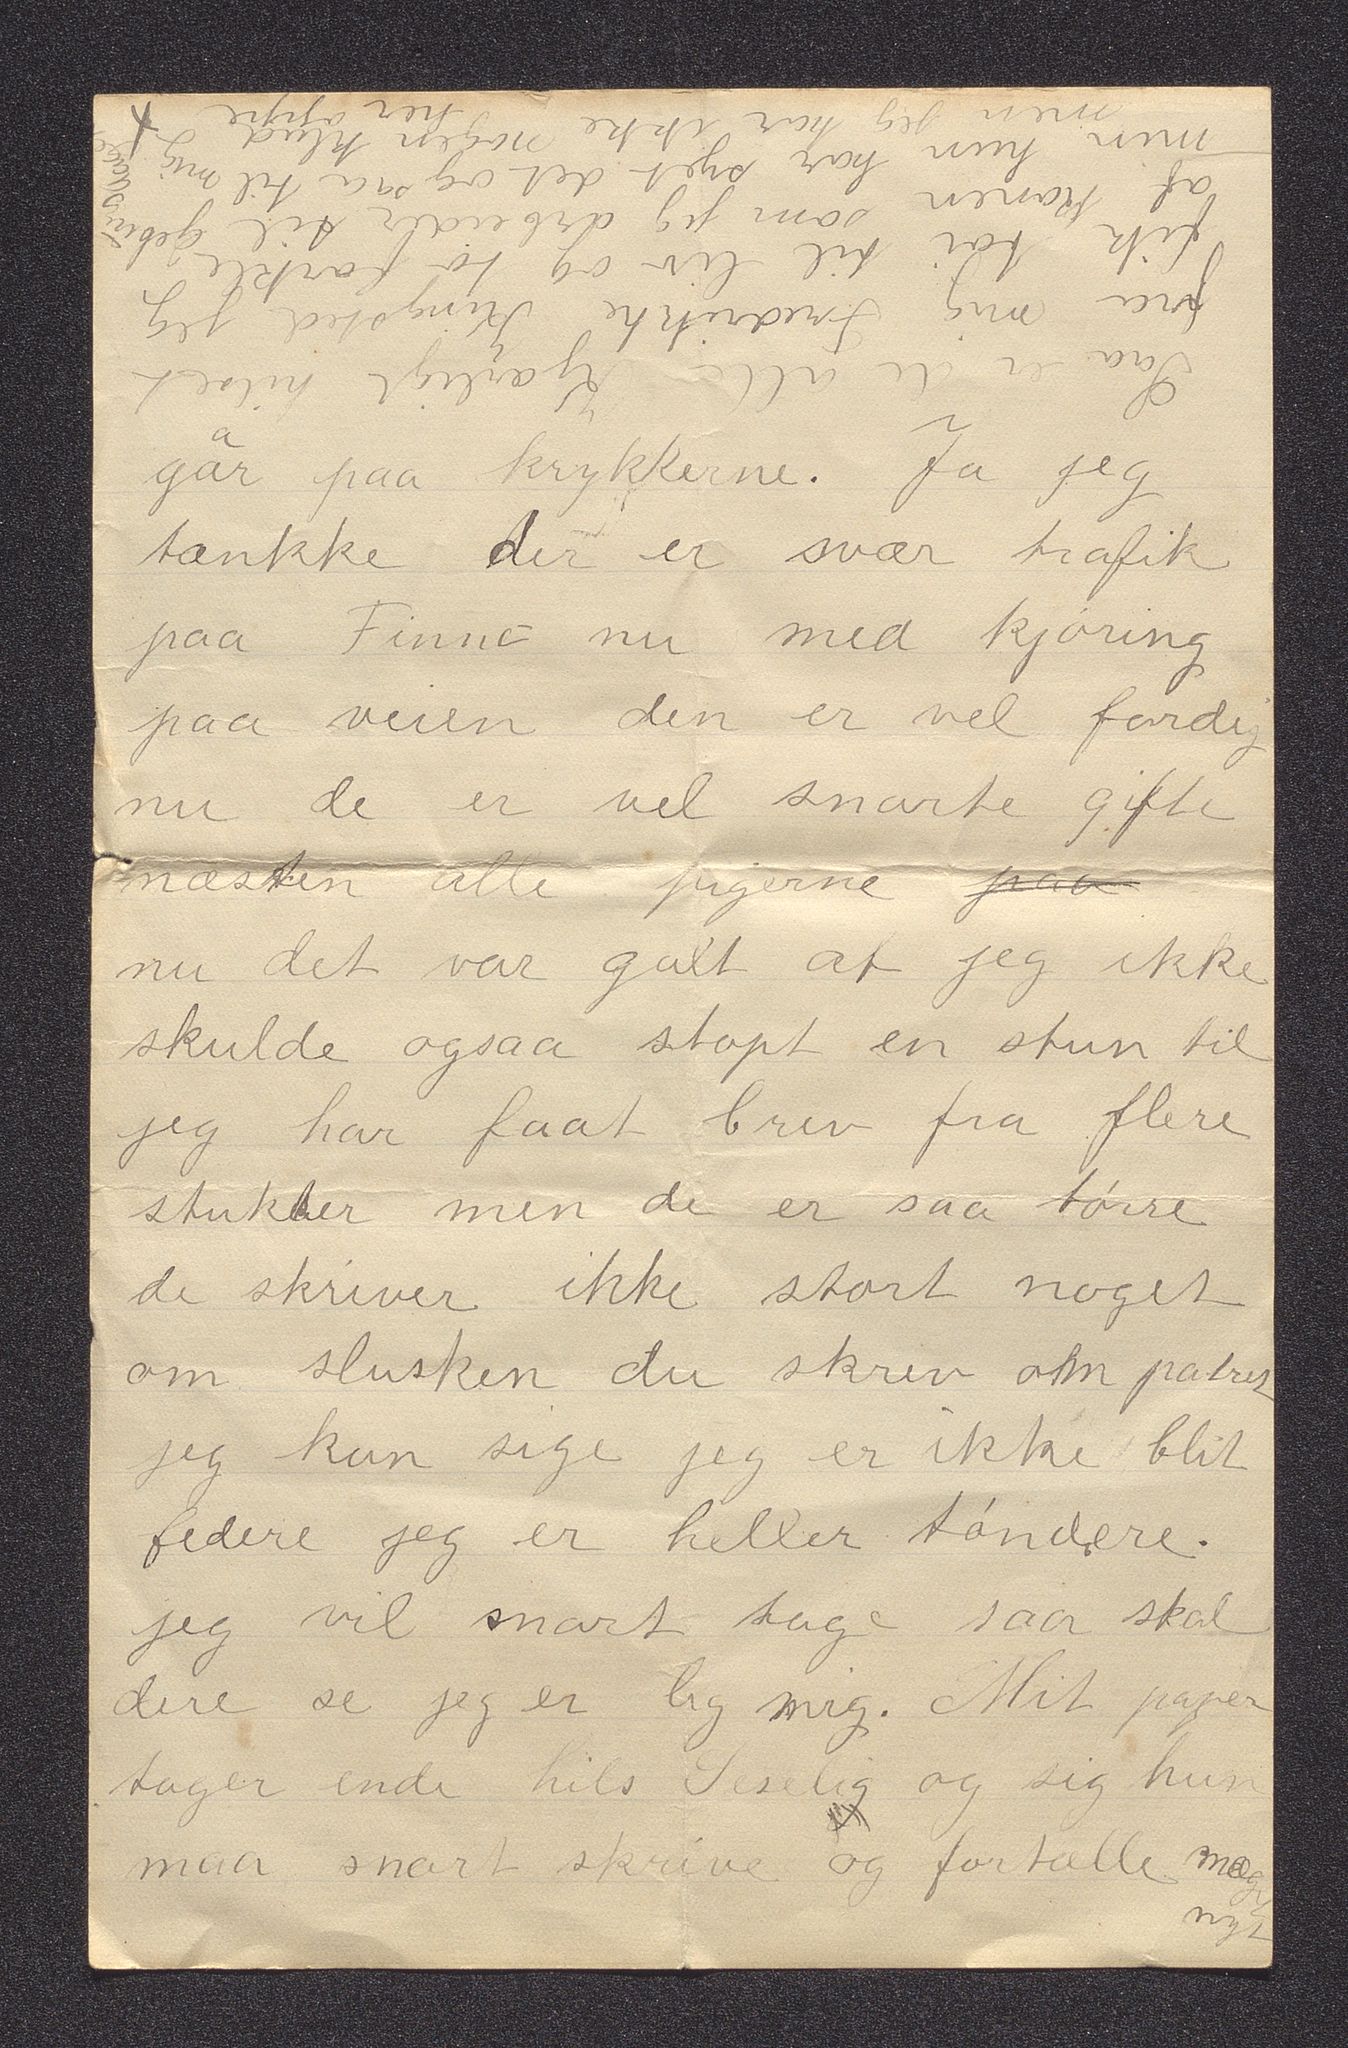 går paa krykkerne. Ja jeg
tænkke der er svær trafik
paa Finnö nu med kjøring
paa veien den er vel fardig
nu de er vel snarte gifte
næsten alle pigerne paa
nu det var galt at jeg ikke
skulde ogsaa stopt en stun til
jeg har faat brev fra flere
stukker men de er saa tørre
de skriver ikke stort noget
om slusken du skrev om patret
jeg kan sige jeg er ikke blit
federe jeg er heller tøndere.
jeg vil snart tage saa skal
dere se jeg er lig mig. Mit paper
tager ende hils Seselig og sig hun
maa snart skrive og fortælle meg
nyt
Saa er de alle Kjærligt hilset
fra mig Fredrikke Ringsted jeg
fik tøi til liv og to forkle
af konen som jeg arbeider til
min hun har syet det ogsaa til mig
men jeg har ikke nogen klud her oppe